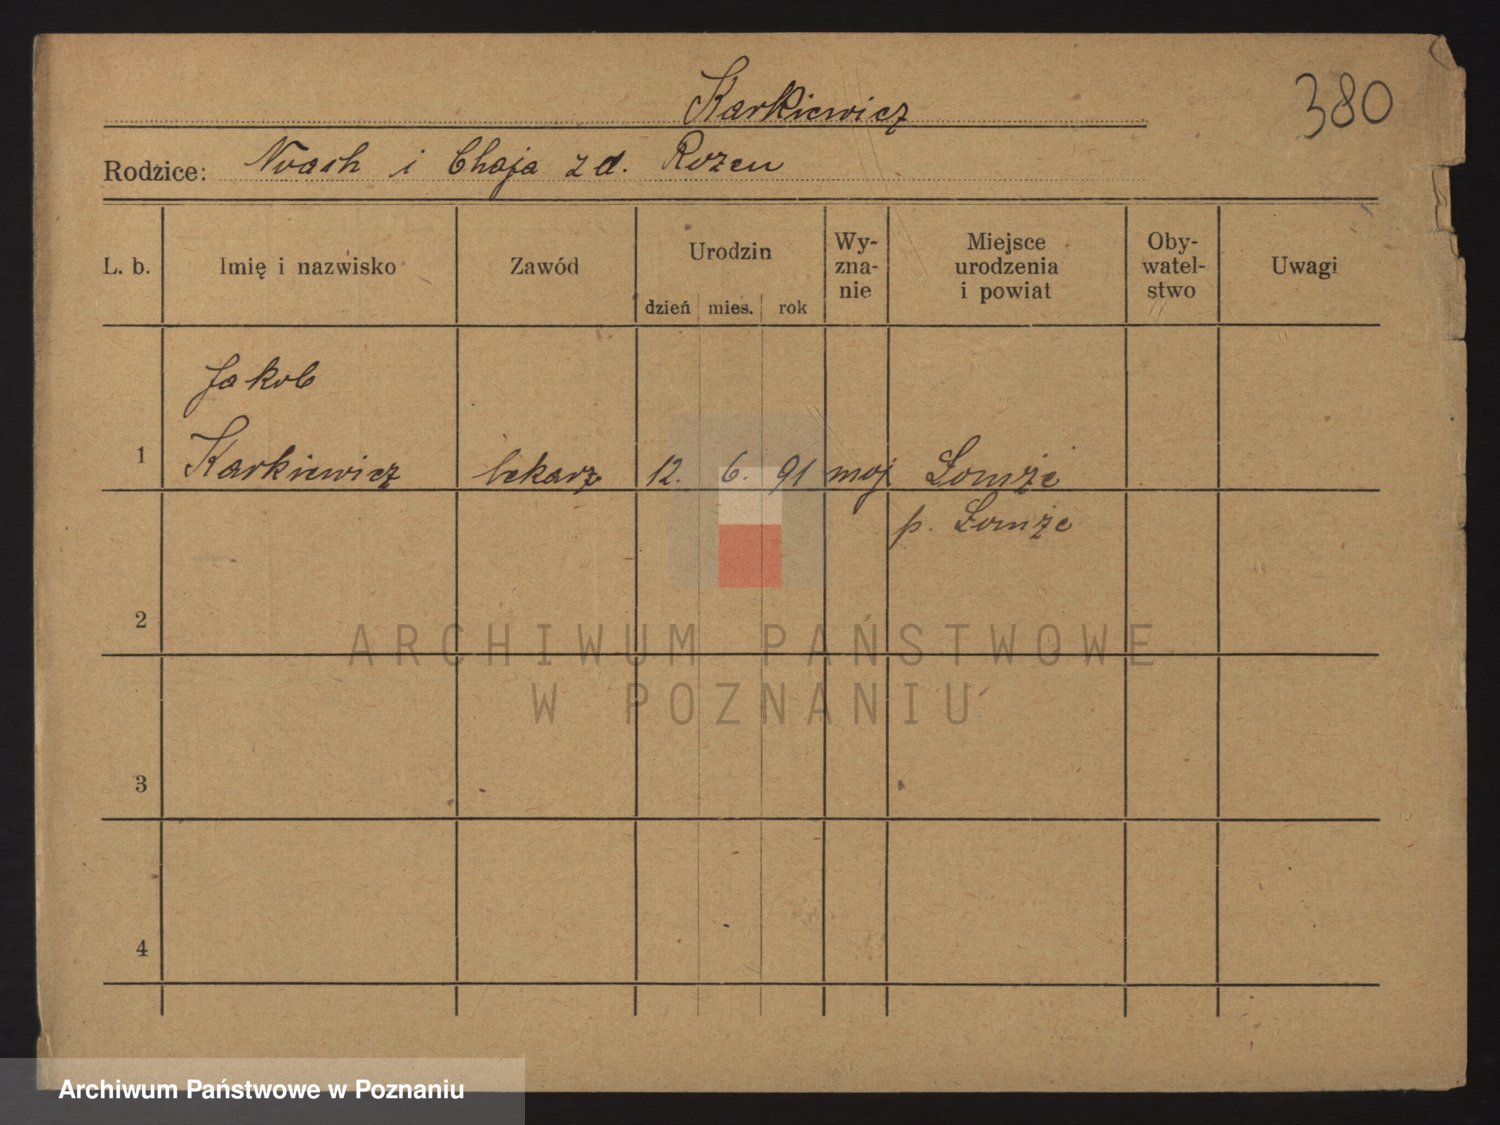 Karkiewicz
380
Rodzice: Noach i Chaja z d. Rozen
L. b.
Imię i nazwisko
Zawód
Urodzin
dzień mies. rok
Wy-
zna-
nie
Miejsce
urodzenia
i powiat
Oby-
watel-
stwo
Uwagi
Jakob
1 Karkiewicz lekarz 12. 6. 91 moj Łomże
p. Łomże
2
3
4
ARCHIWUM PAŃSTWOWE
W POZNANIU
Archiwum Państwowe w Poznaniu